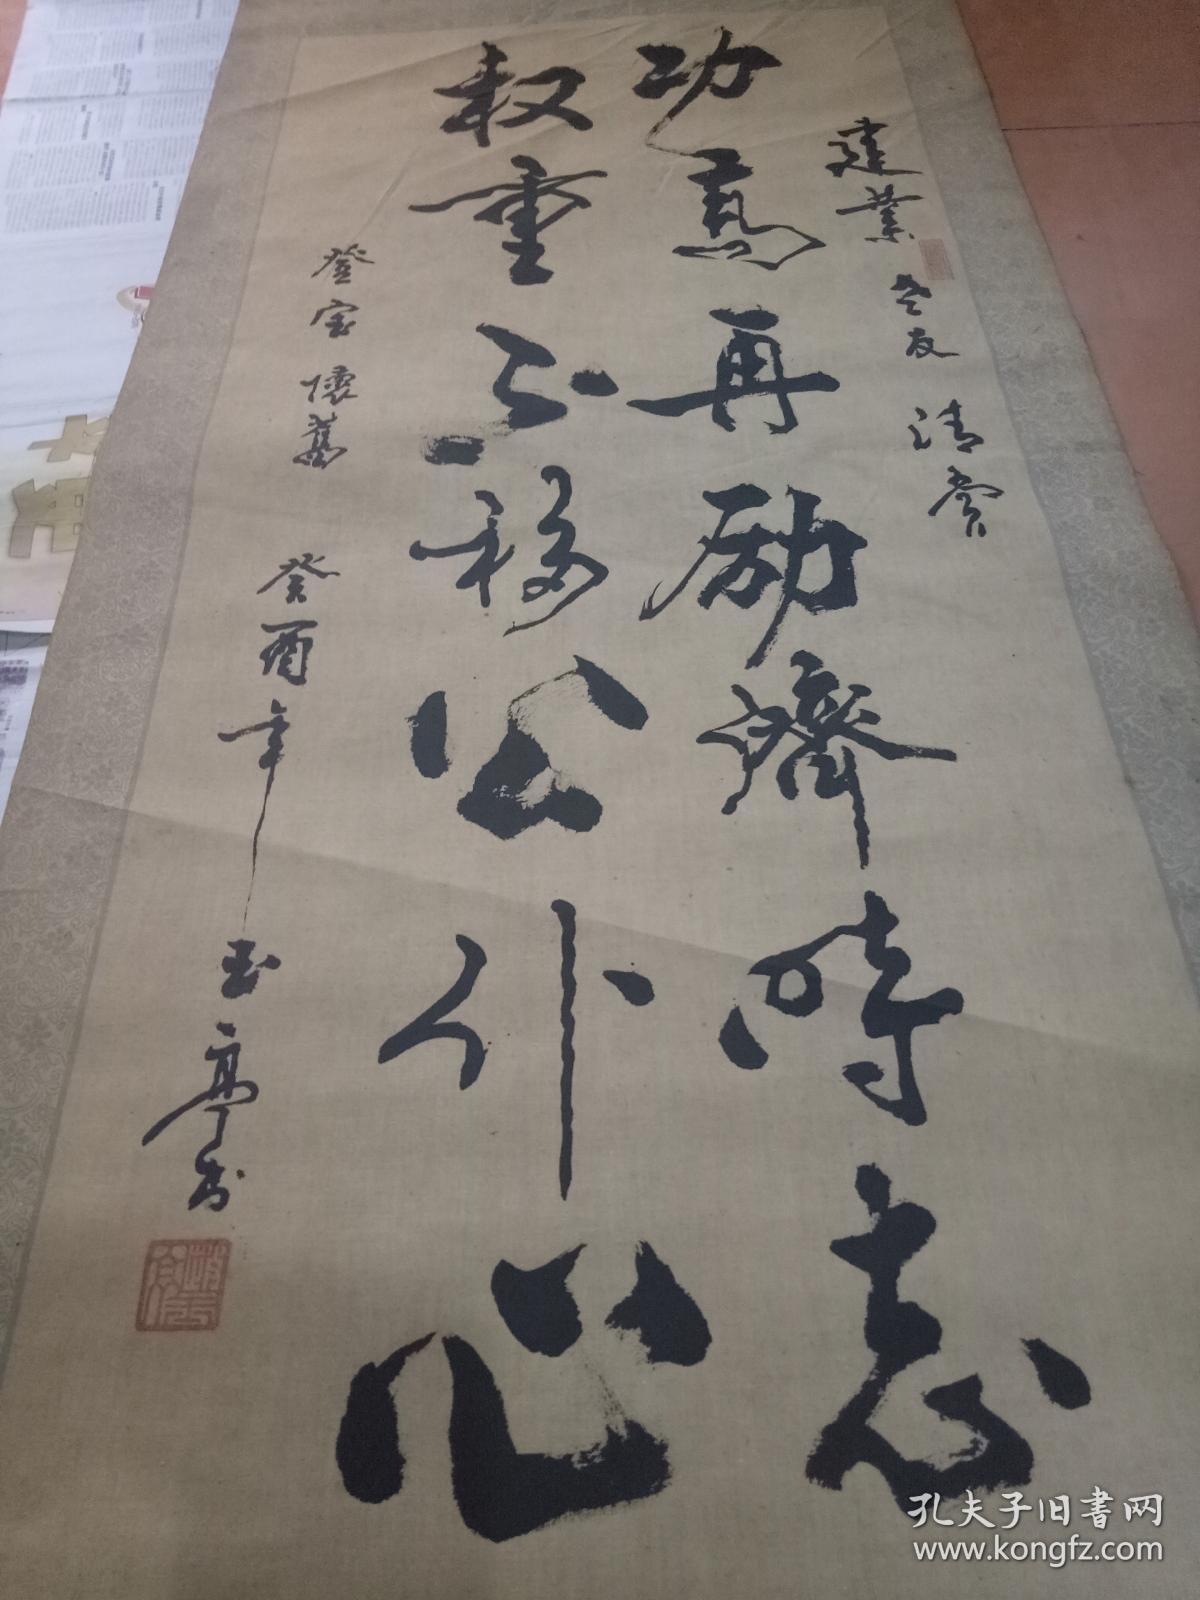 建業老友清賞
功高再励濟時志
权重不移公仆心
登宝懷舊
癸酉年玉亭书
孔夫子旧书网
www.kongfz.com